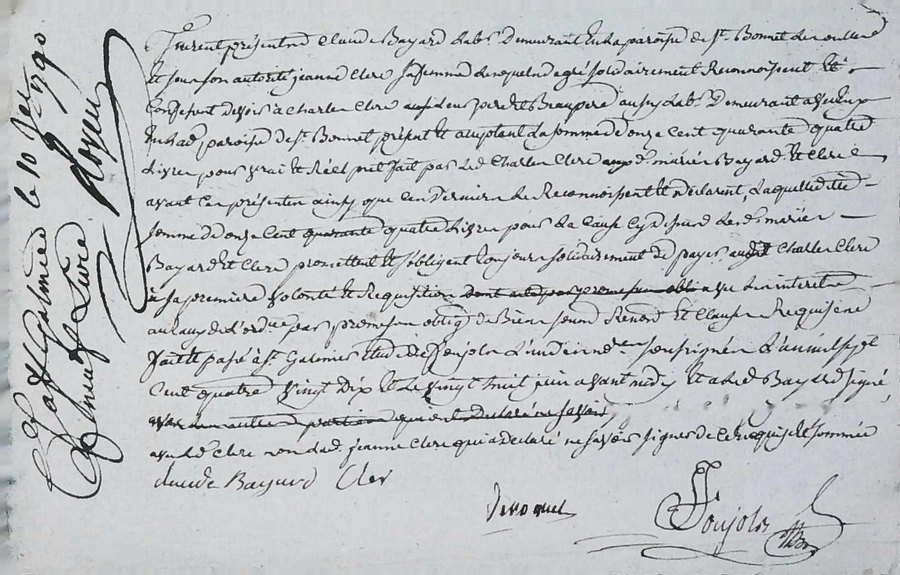 furent présents Claude Bayard lab.r Demeurant en la paroisse de St. Bonnet les oulles
et sous son autorité jeanne Clerc sa femme lesquels de gré solidairement Reconnoissent et
Confessent devoir à Charles Clerc leur pere et Beaupere aussy lab.r Demeurant
en lad. paroisse de St. Bonnet présent et acceptant La somme d'onze Cent quarante quatre
Livres pour vrai et Réel prêt fait par Led. Charles Clerc auxd. mariés Bayard et Clerc
avant Ces présentes ainsy que Ces Derniers Le Reconnoissent et declarent, Laquelle ditte
somme d'onze Cent quarante quatre Livres pour La Cause Cy dessus Lesd. mariés
Bayard et Clerc promettent et s'obligent toujours solidairement de payer aud. Charles Clerc
à sa premiere volonté et Requisition dont acte par promesse obli avec Les interets
au taux de L'ordce par promesse oblig.on de Biens soum.on Renon.on et Clause Requisse
fait et passé à St. Galmier Etude de Ponjolis L'un des nres soussignés L'an mil sept
Cent quatre vingt Dix et Le vingt huit juin avant midy et a Led. Bayard signé
non autres parties qui ont declaré ne savoir
avec led. Clerc non lad. jeanne Clerc qui a declaré ne savoir signer de ce Requise et sommée
claude Bayard Cler
Ponjolis
à St Galmier le 10 1790
neuf Livres
Royer